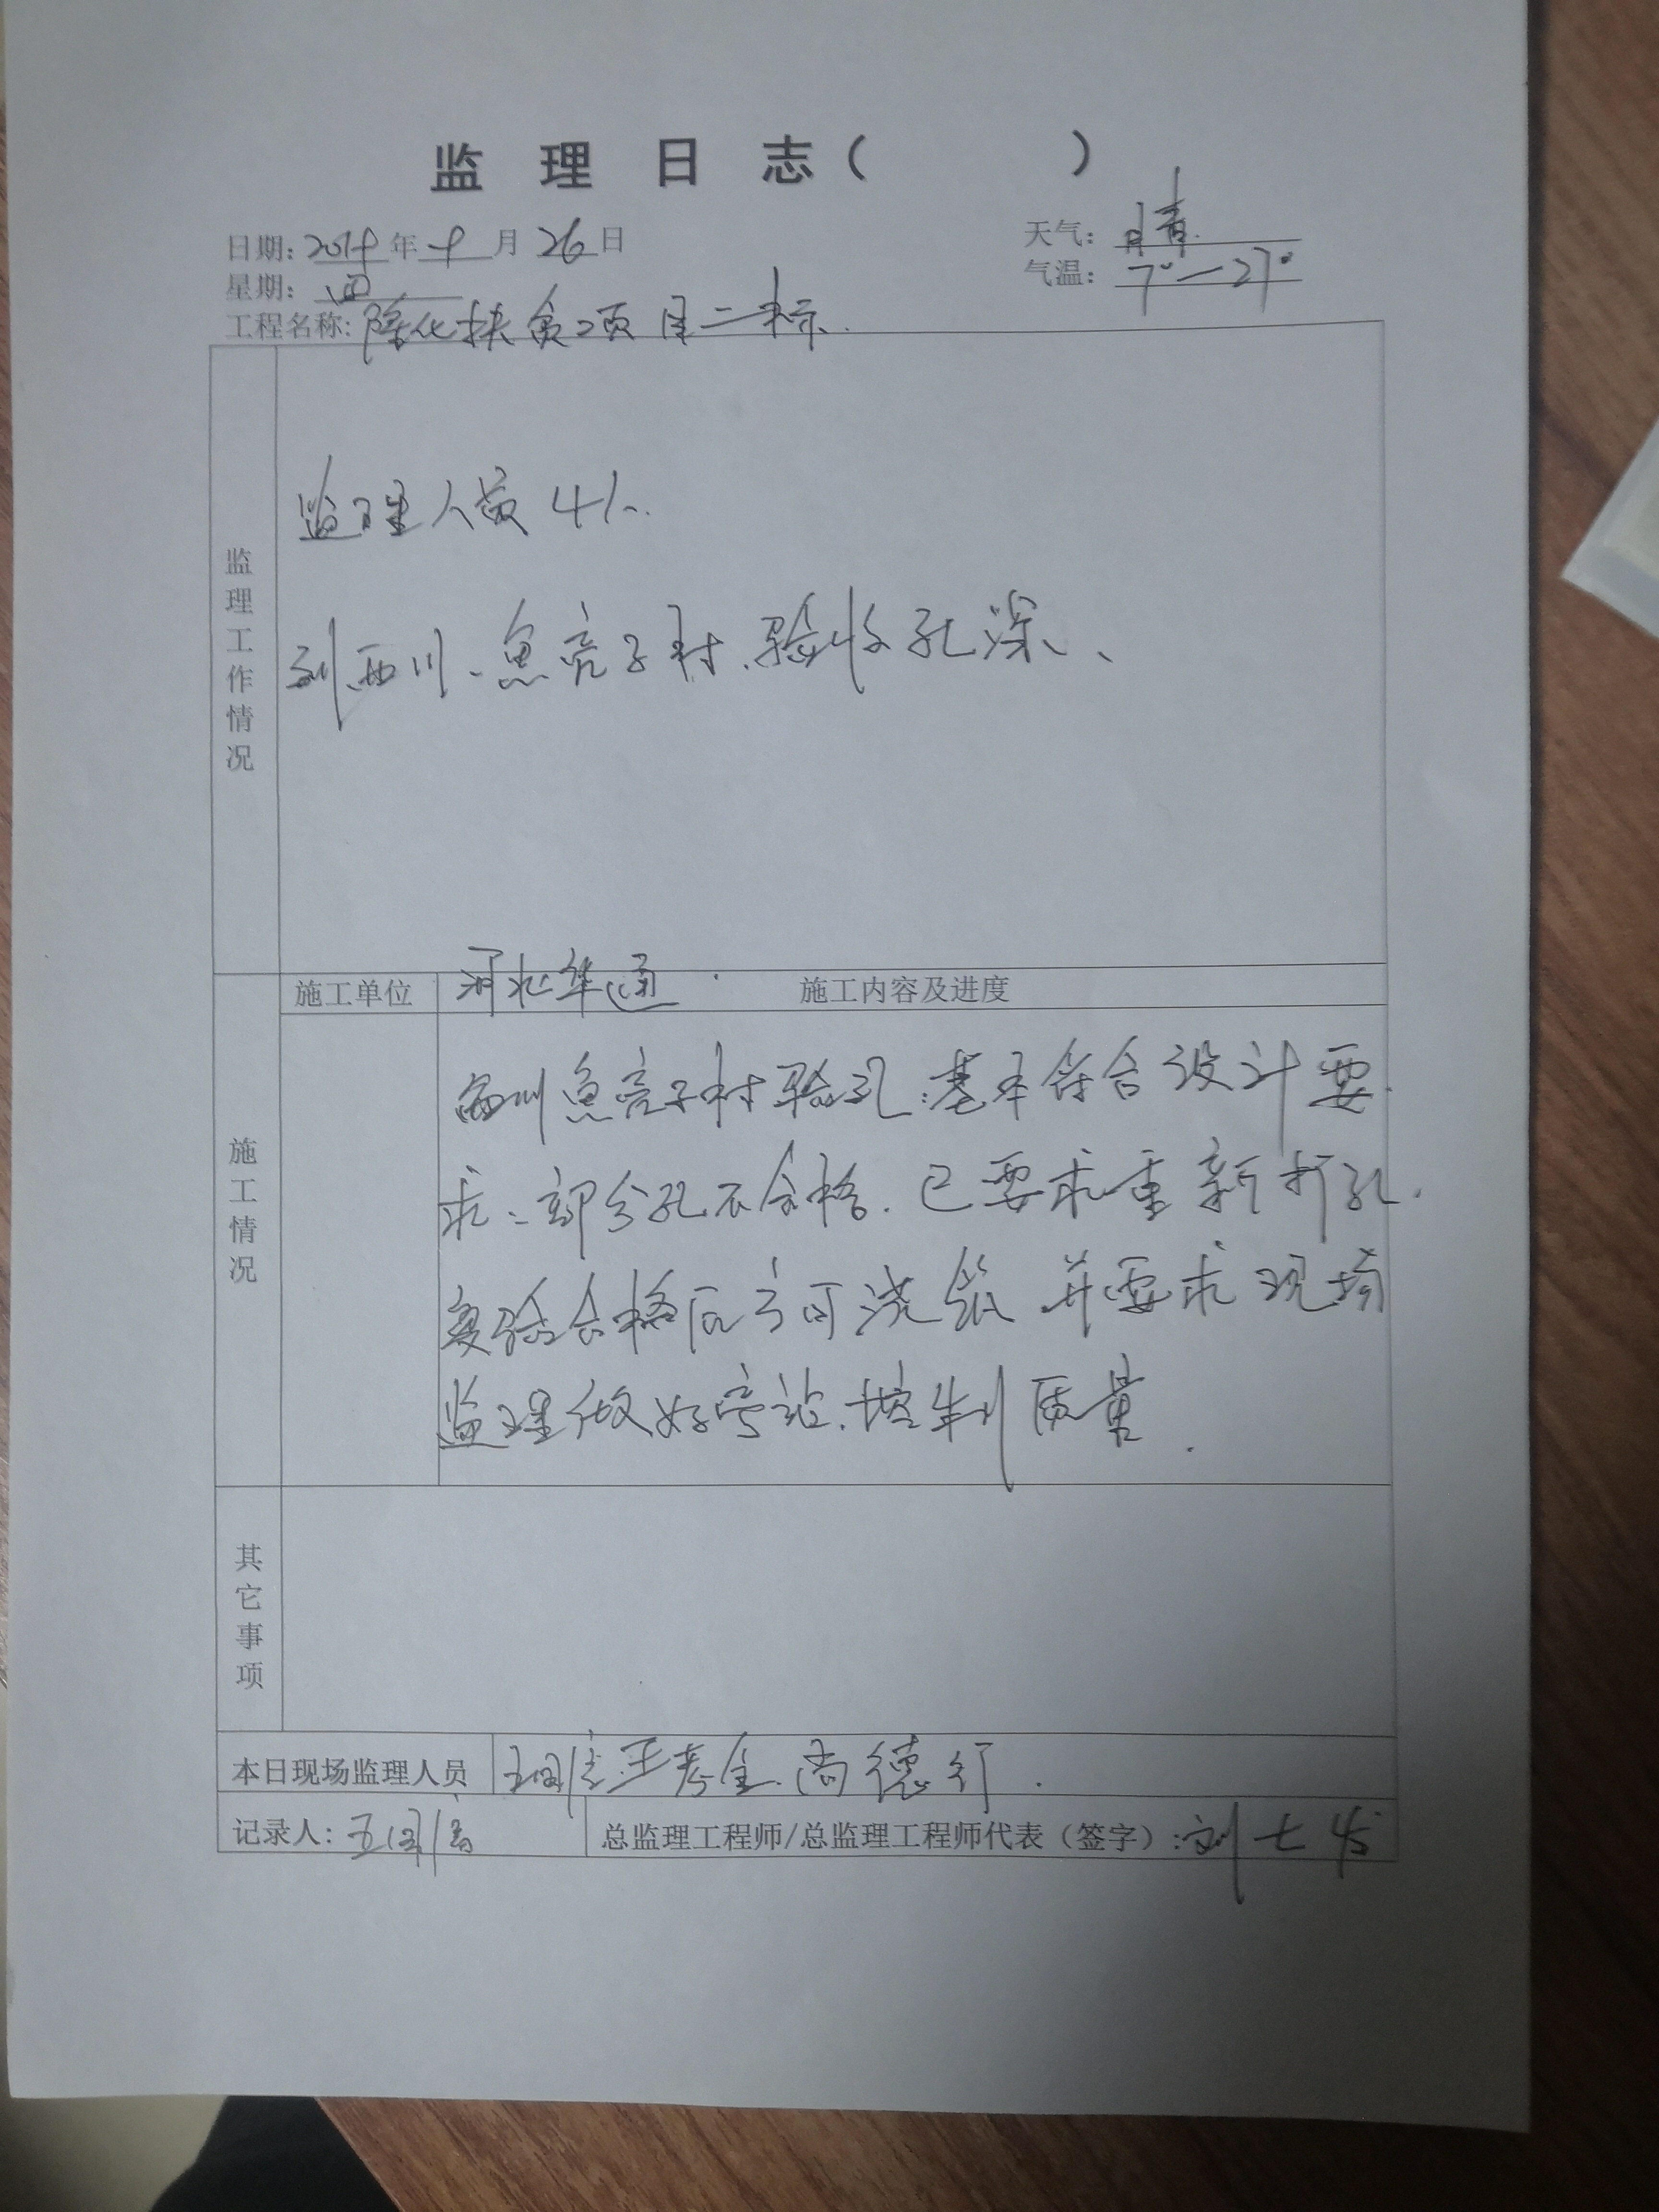 监 理 日 志（ ）
日期：2019 年 9 月 26 日
天气：晴
星期：四
气温：7°—27°
工程名称：隆化扶贫项目二标
监理工作情况
监理人员4人.
到西川、鱼亮子村、验收孔深、
施工单位
河北华通
施工内容及进度
施工情况
西川鱼亮子村验孔:基本符合设计要
求、部分孔不合格.已要求重新打孔.
复验合格后方可浇筑 并要求现场
监理做好旁站.控制质量.
其它事项
本日现场监理人员
尚德
记录人：
总监理工程师/总监理工程师代表（签字）：刘